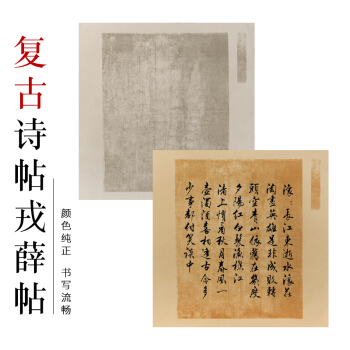 复古诗帖戎薛帖
颜色纯正 书写流畅
滚滚长江东逝水浪花
淘尽英雄是非成败转
头空青山依旧在几度
夕阳红白发渔樵江
渚上惯看秋月春风一
壶浊酒喜相逢古今多
少事都付笑谈中